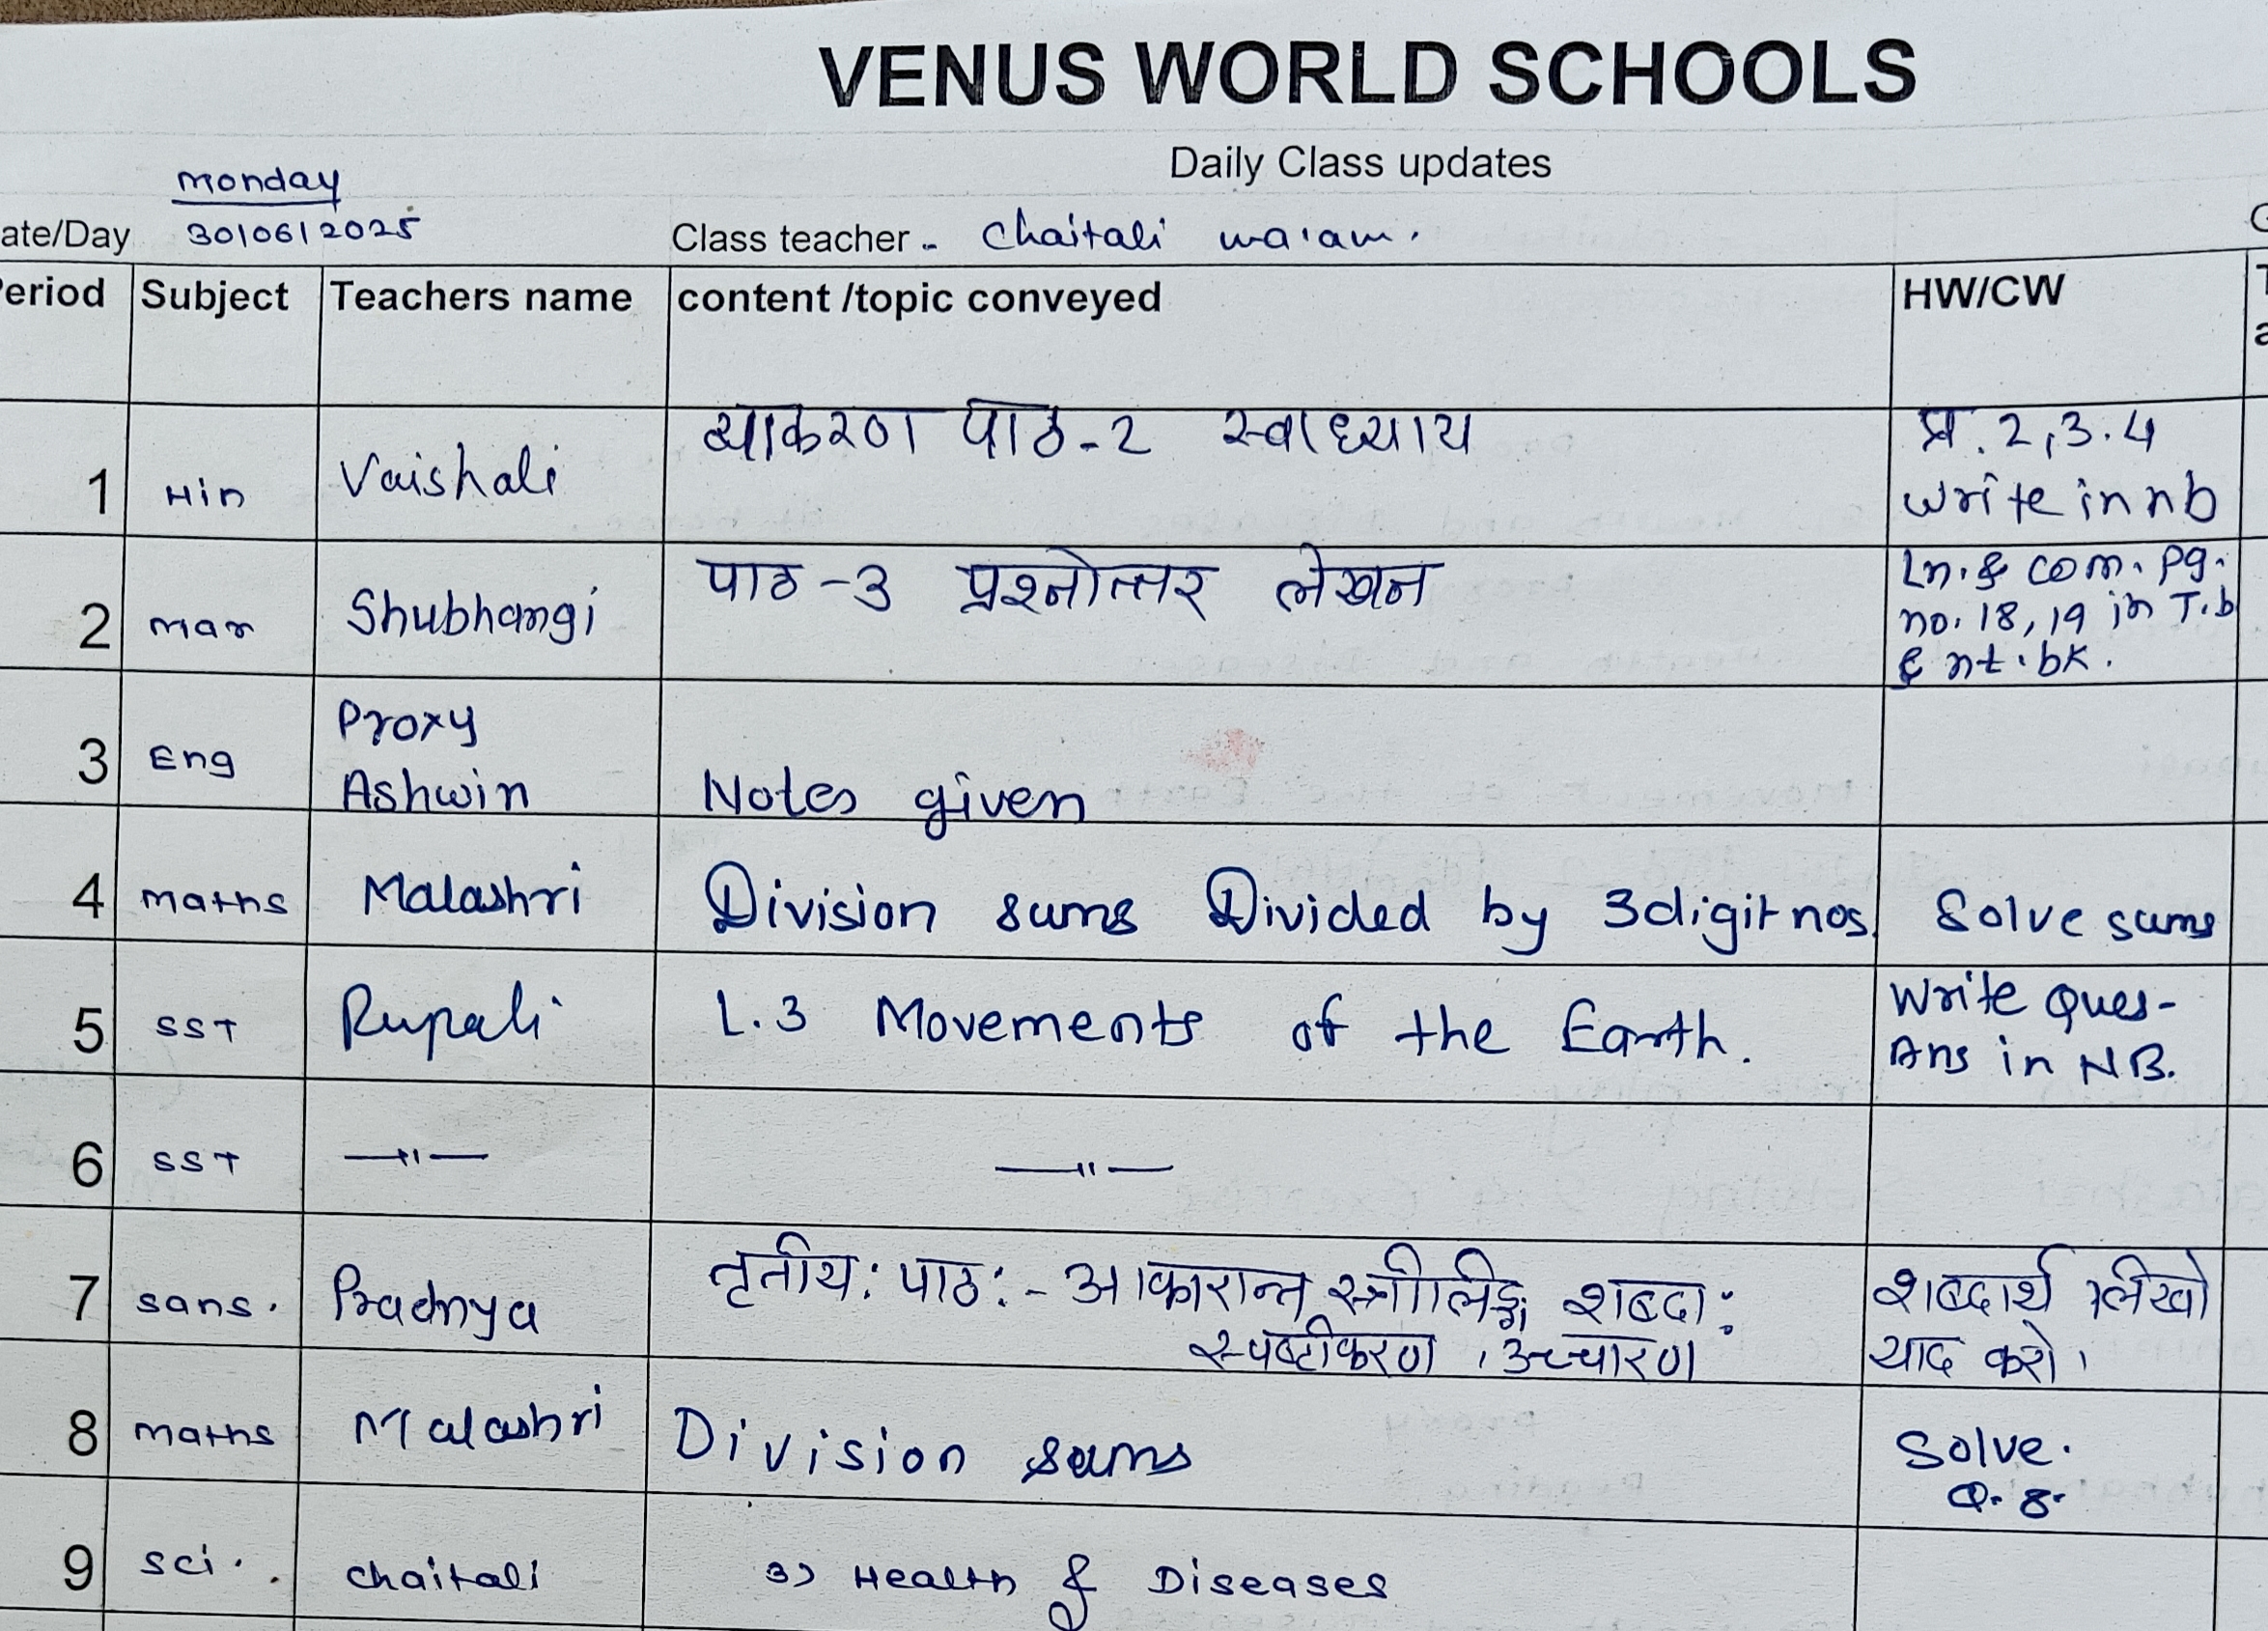 VENUS WORLD SCHOOLS
Daily Class updates
monday
ate/Day 30/06/2025 Class teacher - Chaitali ma'am.
eriod Subject Teachers name content /topic conveyed HW/CW
1 Hin Vaishali व्याकरण पाठ-2 स्वाध्याय प्र. 2,3.4
write in nb
2 mar Shubhangi पाठ -3 प्रश्नोत्तर लेखन Ln. & com. pg.
no. 18, 19 in T.b
& nt. bk.
3 Eng Proxy
Ashwin Notes given
4 maths Malashri Division sums Divided by 3digit nos. Solve sums
5 SST Rupali L.3 Movements of the Earth. Write Ques-
Ans in NB.
6 SST —"— —"—
7 sans. Pradnya तृतीय: पाठ: - आकारान्त स्त्रीलिङ्ग शब्दा: शब्दार्थ लिखो
स्पष्टीकरण, उच्चारण याद करो।
8 maths Malashri Division sums Solve.
Q. 8.
9 sci. Chaitali 3) Health & Diseases